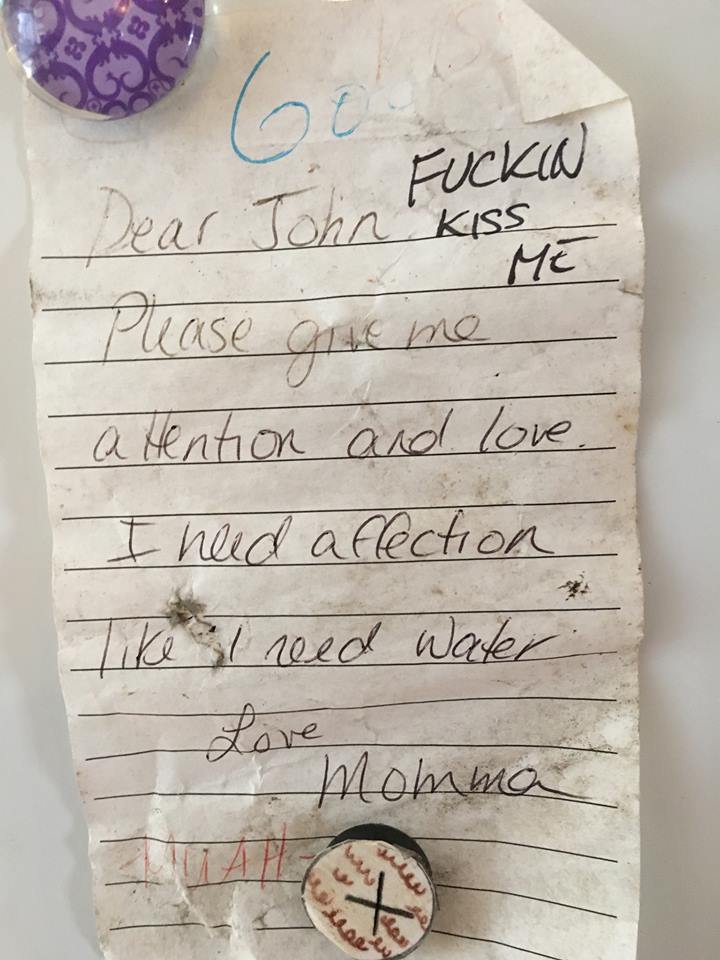 Dear John FUCKIN
KISS
ME
Please give me
attention and love.
I need affection
like I need water
Love
Momma
MUAH-